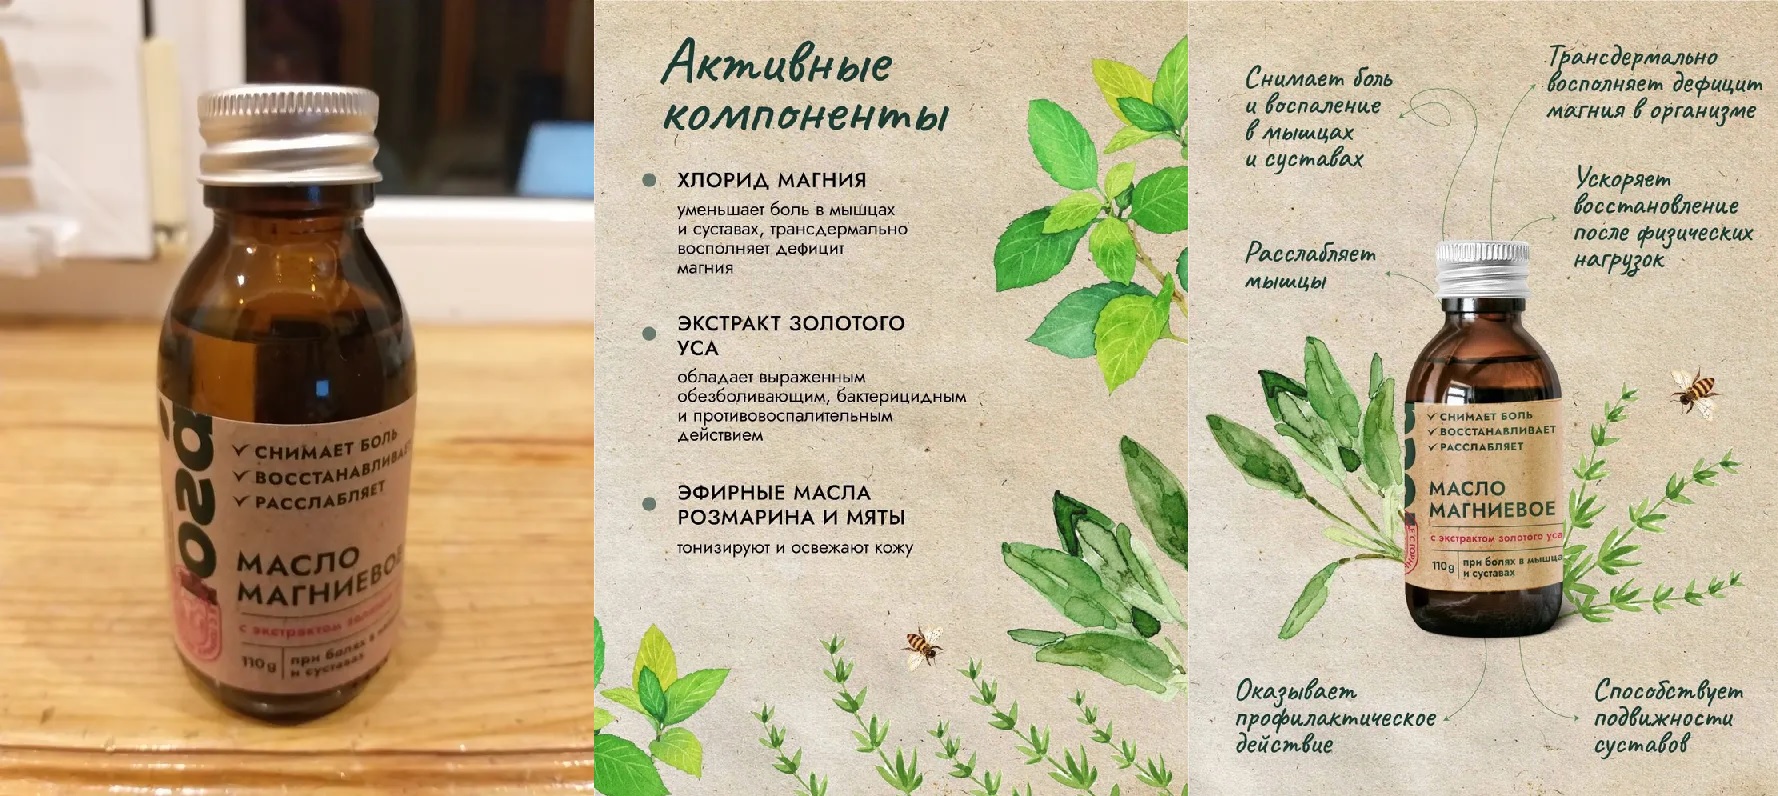 СНИМАЕТ БОЛЬ
ВОССТАНАВЛИВАЕТ
РАССЛАБЛЯЕТ
МАСЛО
МАГНИЕВОЕ
с экстрактом
110g
при болях в
и суставах
Активные
компоненты
ХЛОРИД МАГНИЯ
уменьшает боль в мышцах
и суставах, трансдермально
восполняет дефицит
магния
ЭКСТРАКТ ЗОЛОТОГО
УСА
обладает выраженным
обезболивающим, бактерицидным
и противовоспалительным
действием
ЭФИРНЫЕ МАСЛА
РОЗМАРИНА И МЯТЫ
тонизируют и освежают кожу
Снимает боль
и воспаление
в мышцах
и суставах
Трансдермально
восполняет дефицит
магния в организме
Ускоряет
восстановление
после физических
нагрузок
Расслабляет
мышцы
СНИМАЕТ БОЛЬ
ВОССТАНАВЛИВАЕТ
РАССЛАБЛЯЕТ
МАСЛО
МАГНИЕВОЕ
с экстрактом золотого уса
110g
при болях в мышцах
и суставах
Оказывает
профилактическое
действие
Способствует
подвижности
суставов